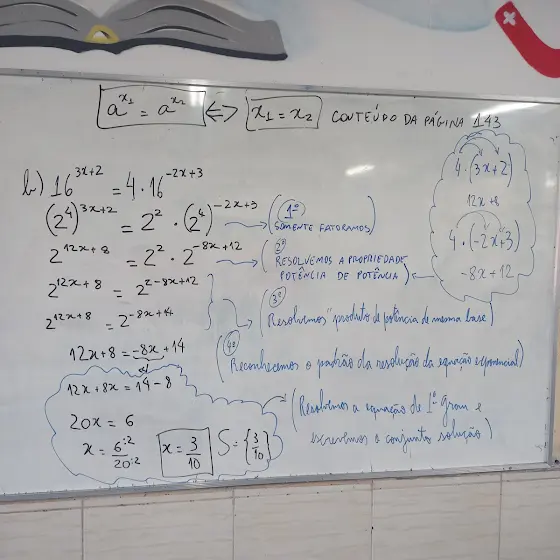 a^x₁ = a^x₂ ⇔ x₁ = x₂ CONTEÚDO DA PÁGINA 143
b) 16^3x+2 = 4 · 16^-2x+3
(2^4)^3x+2 = 2^2 · (2^4)^-2x+3 → (1º SOMENTE FATORAMOS)
2^12x+8 = 2^2 · 2^-8x+12 → (2º RESOLVEMOS A PROPRIEDADE
POTÊNCIA DE POTÊNCIA)
2^12x+8 = 2^2-8x+12
2^12x+8 = 2^-8x+14
(3º
Resolvemos "produto de potência de mesma base)
12x+8 = -8x+14
(4º
Reconhecemos o padrão da resolução da equação exponencial)
12x+8x = 14-8
20x = 6
x = 6:2/20:2 x = 3/10 S = {3/10}
(Resolvemos a equação de 1º grau e
escrevemos o conjunto solução)
4 · (3x+2)
12x+8
4 · (-2x+3)
-8x+12